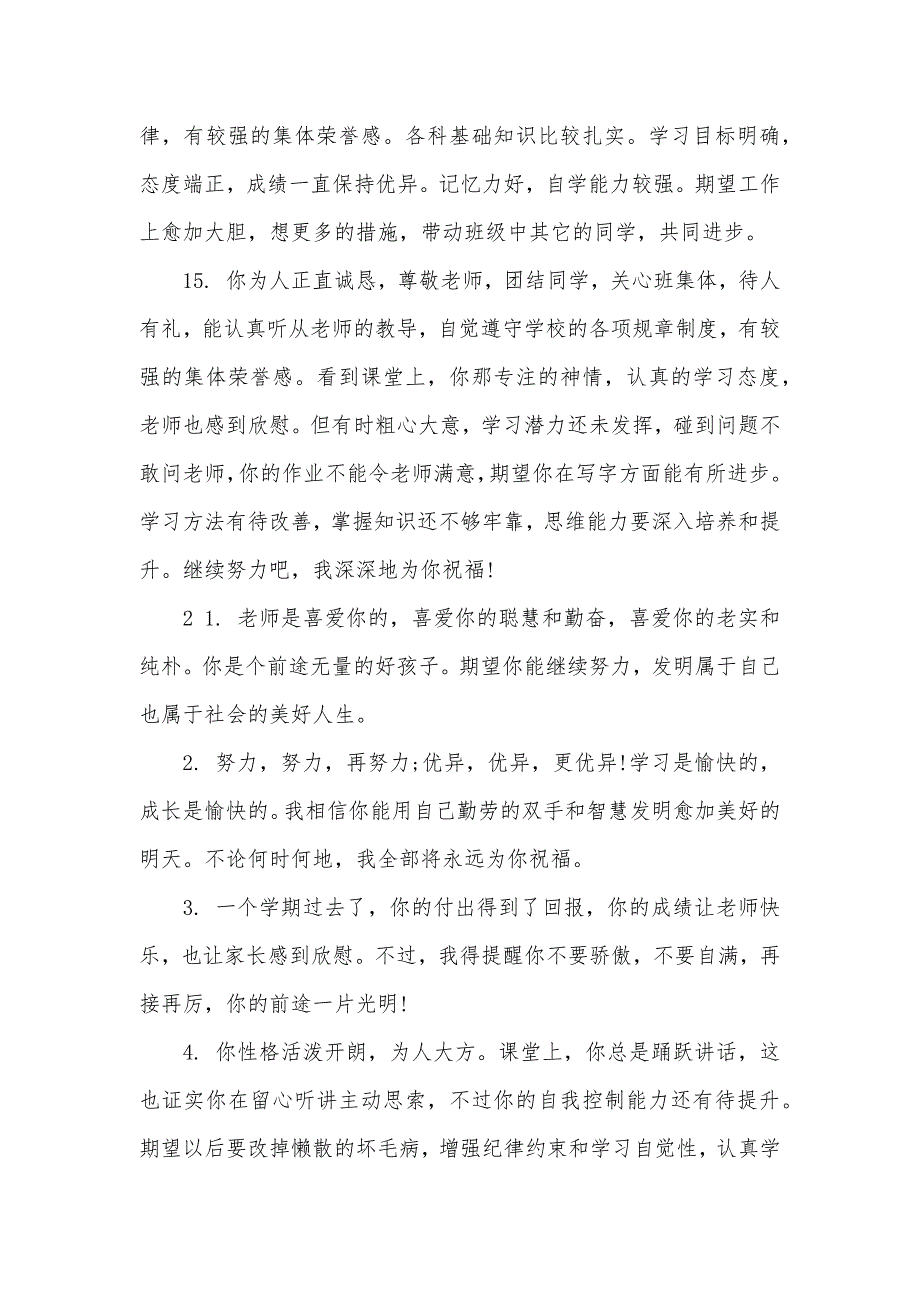 律，有较强的集体荣誉感。各科基础知识比较扎实。学习目标明确，
态度端正，成绩一直保持优异。记忆力好，自学能力较强。期望工作
上愈加大胆，想更多的措施，带动班级中其它的同学，共同进步。
15. 你为人正直诚恳，尊敬老师，团结同学，关心班集体，待人
有礼，能认真听从老师的教导，自觉遵守学校的各项规章制度，有较
强的集体荣誉感。看到课堂上，你那专注的神情，认真的学习态度，
老师也感到欣慰。但有时粗心大意，学习潜力还未发挥，碰到问题不
敢问老师，你的作业不能令老师满意，期望你在写字方面能有所进步。
学习方法有待改善，掌握知识还不够牢靠，思维能力要深入培养和提
升。继续努力吧，我深深地为你祝福!
2 1. 老师是喜爱你的，喜爱你的聪慧和勤奋，喜爱你的老实和
纯朴。你是个前途无量的好孩子。期望你能继续努力，发明属于自己
也属于社会的美好人生。
2. 努力，努力，再努力;优异，优异，更优异!学习是愉快的，
成长是愉快的。我相信你能用自己勤劳的双手和智慧发明愈加美好的
明天。不论何时何地，我全部将永远为你祝福。
3. 一个学期过去了，你的付出得到了回报，你的成绩让老师快
乐，也让家长感到欣慰。不过，我得提醒你不要骄傲，不要自满，再
接再厉，你的前途一片光明!
4. 你性格活泼开朗，为人大方。课堂上，你总是踊跃讲话，这
也证实你在留心听讲主动思索，不过你的自我控制能力还有待提升。
期望以后要改掉懒散的坏毛病，增强纪律约束和学习自觉性，认真学